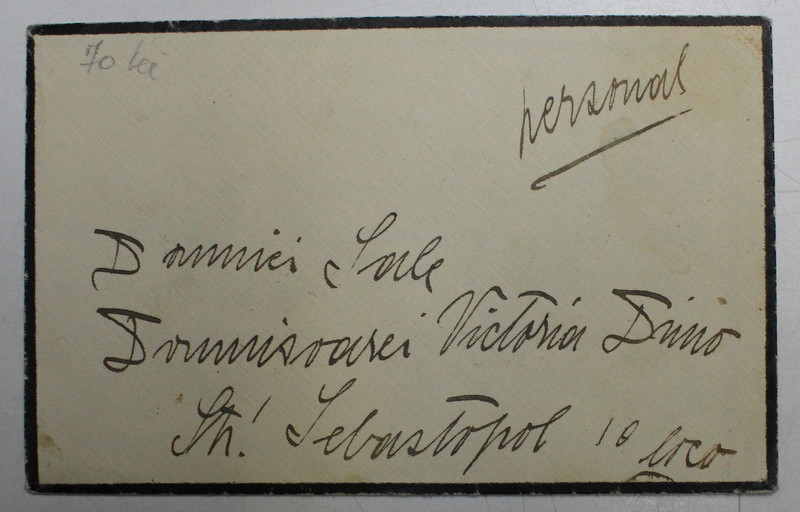 70 lei
personal
Domniei Sale
Domnisoarei Victoria Dimo
Str. Sebastopol 10 loco